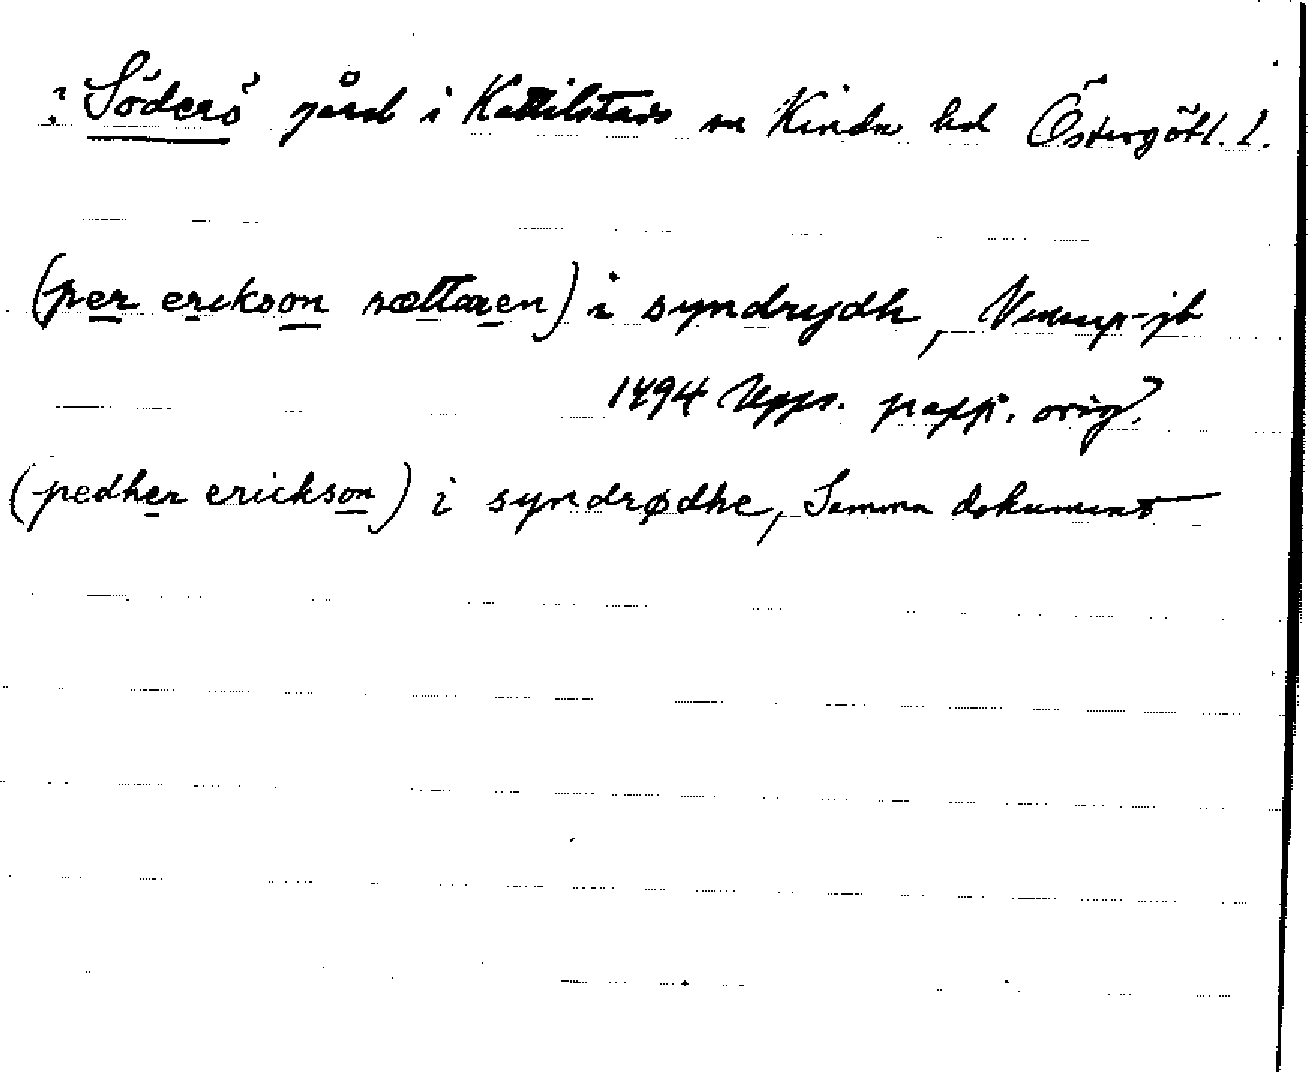 ? Söderö gård i Kättilstads sn Kinda hd Östergötl. l.
(per erikson sættaren) i syndrydh, Vinsarp-jb
1494 Upps. papp. orig.
(pedher erickson) i syndrødhe, Samma dokument